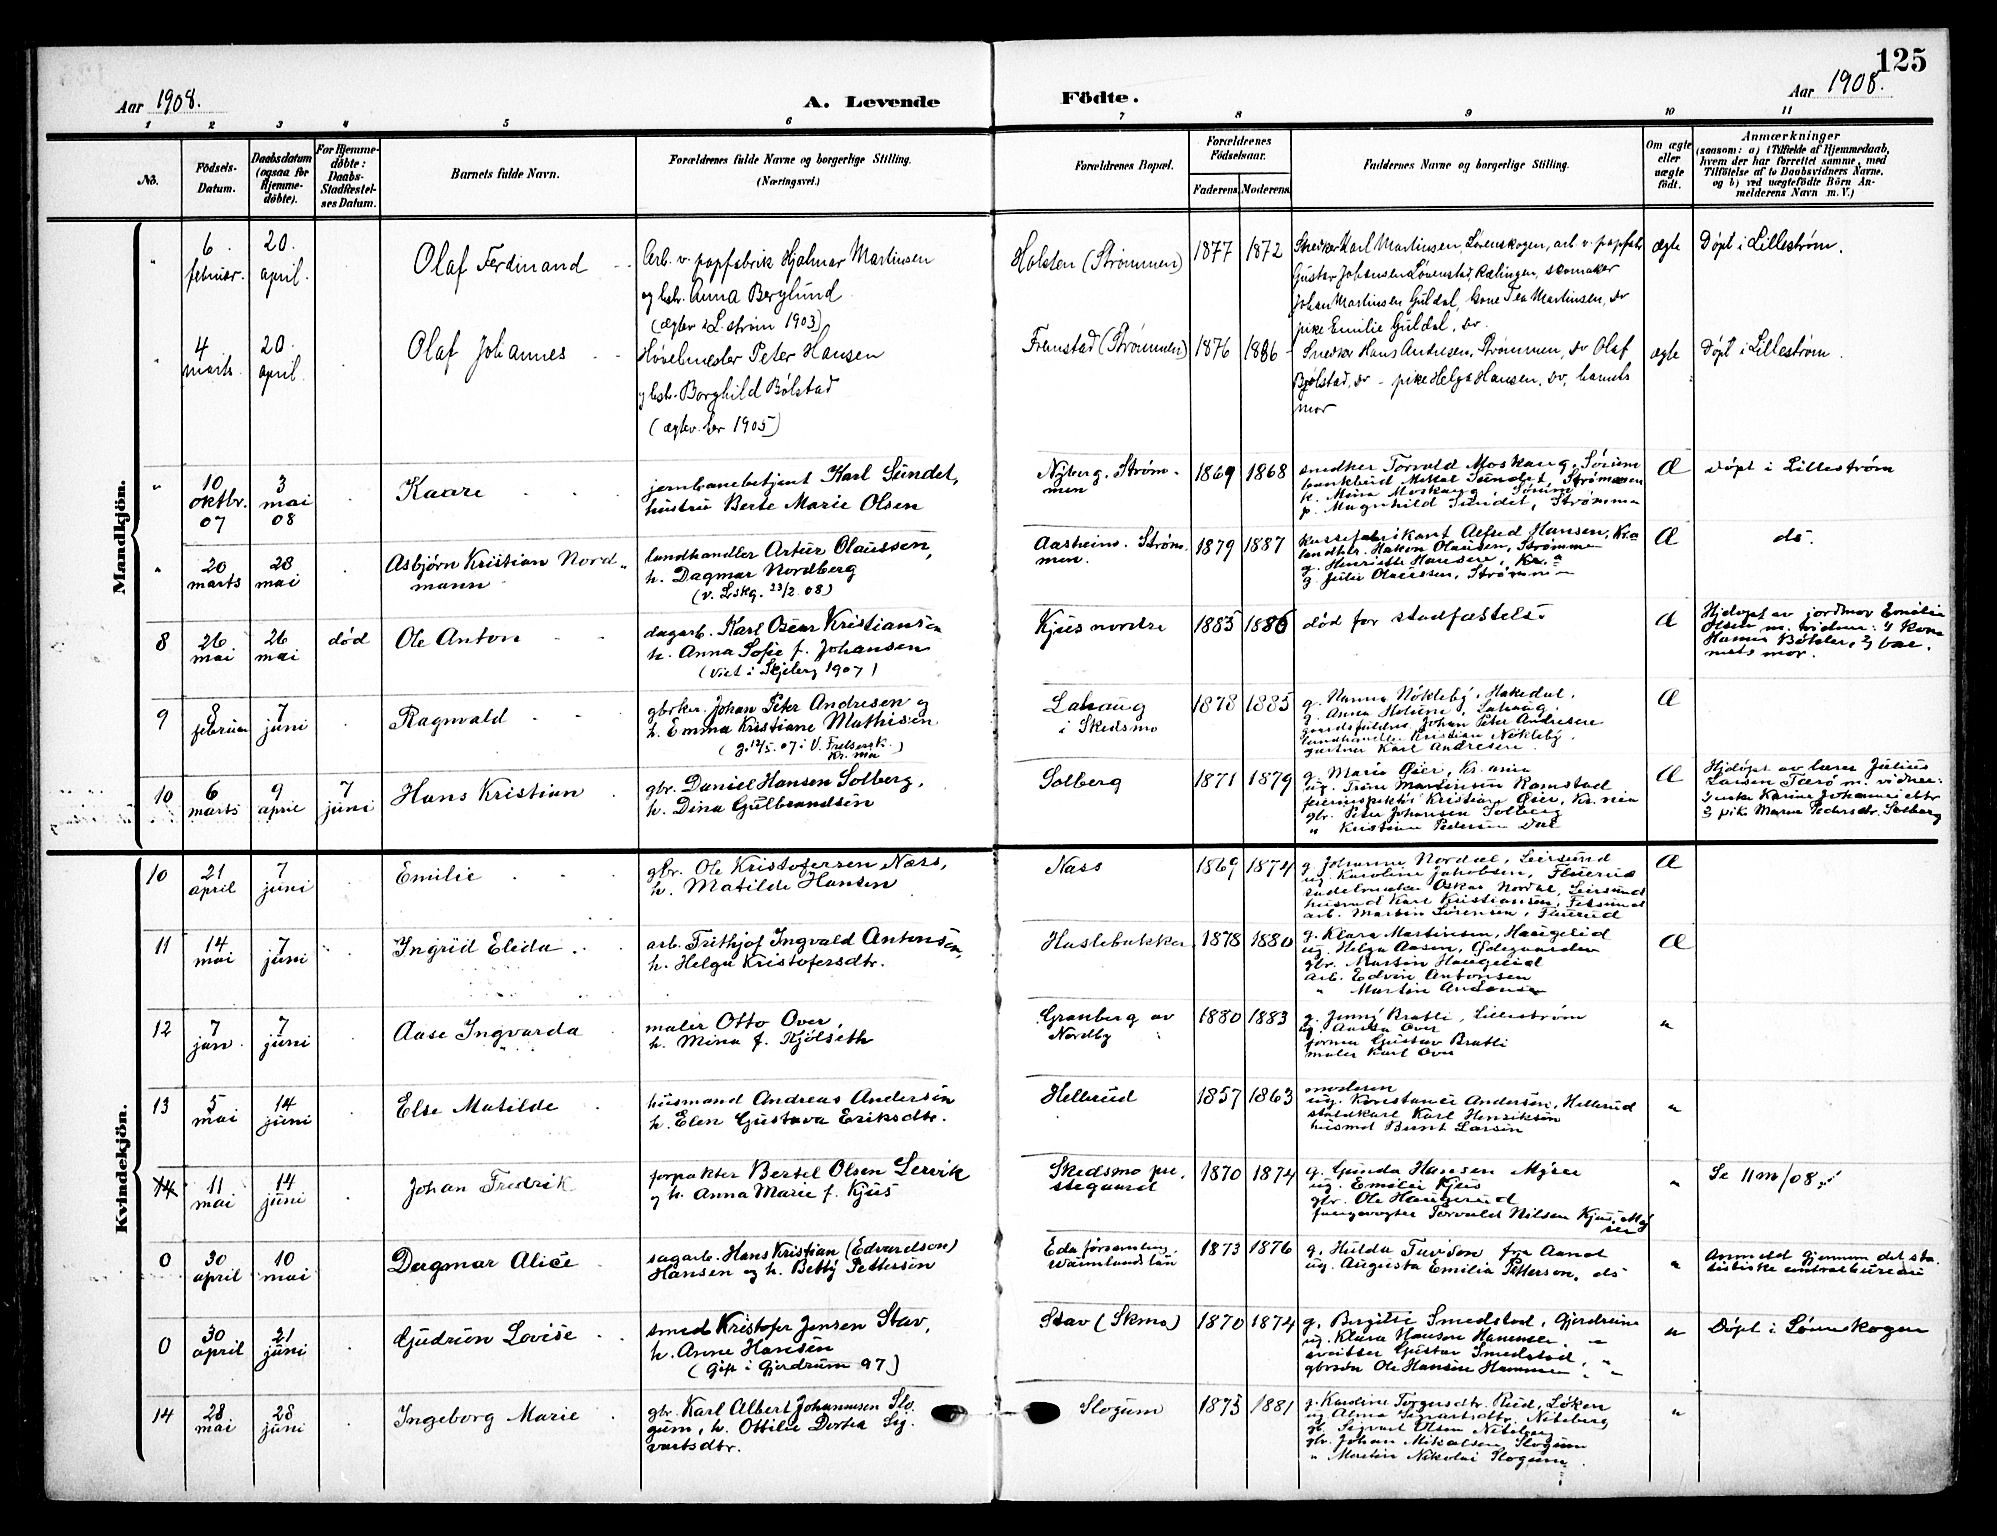 125
Aar 1908.
A. Levende
Födte.
Aar 1908.
1 2 3 4 5 6 7 8 9 10 11
No.
Födsels-Datum.
Daabsdatum (ogsaa for Hjemme-döbte).
For Hjemme-döbte: Daabs-Stadfæstel-ses Datum.
Barnets fulde Navn.
Forældrenes fulde Navne og borgerlige Stilling.
(Næringsvei.)
Forældrenes Bopæl.
Forældrenes Födselsaar.
Faderens. Moderens.
Faddernes Navne og borgerlige Stilling.
Om ægte eller uægte födt.
Anmærkninger
(saasom: a) i Tilfælde af Hjemmedaab,
hvem der har forrettet samme, med
Tilföielse af to Daabsvidners Navne,
og b) ved uægtefödte Börn An-
melderens Navn m. V.)
Mandkjön.
" 6 februar. 20 april. Olaf Ferdinand
Arb. v. papfabrik Hjalmar Martinsen
og hstr. Anna Berglund
(ægtev i L.strøm 1903)
Holsten (Strømmen) 1877 1872
Snedker Karl Martinsen, Lørenskogen, arb. v. papfabr
Gustav Johansen Lørenstad, Rælingen, skomaker
Johan Martinsen Guldal, kone Tea Martinsen, sv
pike Emilie Guldal, sv.
ægte Døpt i Lillestrøm.
" 4 marts. 20 april. Olaf Johannes
Høvelmester Peter Hansen
g hstr. Borghild Bölstad
(ægtev. her 1905)
Fremstad (Strømmen) 1876 1886
Snedker Hans Andresen, Strømmen, sv Olaf
Bjølstad, sv - pike Helga Hansen, sv, barnets
mor
ægte Döpt i Lillestrøm.
" 10 oktbr. 07 3 mai 08 Kaare
jernbanebetjent Karl Sundet,
hustru Berte Marie Olsen
Nyberg. Strøm-
men 1869 1868
snedker Torvald Moskaug, Sørum
bankbud Mikal Sundet, Strømmen
p. Mina Moskaug Sørum
p. Magnhild Sundet, Strømmen
Æ Döpt i Lillestrøm
" 20 marts 28 mai Asbjørn Kristian Nord-
mann
landhandler Artur Olaussen,
h. Dagmar Nordberg
(v. Lskg. 23/2 08)
Aasheim. Strøm-
men. 1879 1887
kassefabrikant Alfred Hansen, Kr.a
landhr. Hakon Olausen, Strømmen
g. Henriette Hansen, Kr.a
g. Julie Olaussen, Strømmen
Æ ds.
8 26 mai 26 mai död Ole Anton
dagarb. Karl Oscar Kristiansen
h. Anna Sofie f. Johansen
(viet i Skjeberg 1907)
Kjus nordre 1883 1886 död før stadfæstelse
Æ Hjdöpt av jordmor Emilie
Olsen m. vidner: 1) kone
Hanna Bökler, 2) bar-
nets mor.
9 8 februar 7 juni Ragnvald
gbrker. Johan Peter Andresen og
h. Emma Kristiane Mathisen
(g. 12/5. 07 i V. Frelsersk.
Kr.nia)
Lahaug
i Skedsmo 1878 1885
g. Hanna Nökleby, Hakedal.
g. Anna Holum, Lahaug.
gaardsfuldm. Johan Peter Andresen
landhandler Kristian Nökleby.
gartner Karl Andresen.
Æ
10 6 marts 9 april 7 juni Hans Kristian
gbr. Daniel Hansen Solberg,
h. Dina Gulbrandsen
Solberg 1871 1879
g. Marie Øier, Kr.ania
ug. Trine Martinsen Ramstad
feierinspektör Kristian Øier, Kr.nia
gbr. Peter Johansen Solberg
" Kristian Pedersen Dal
Æ Hjdöpt av lærer Julius
Larsen Tærø m. vidner:
1) enke Karine Johannesdtr
2) pike Maren Pedersdtr. Solberg
Kvindekjön.
10 21 april 7 juni Emilie
gbr. Ole Kristofersen Næss,
h. Matilde Hansen
Næss 1869 1874
g. Johanne Nordal, Leirsund
ug. Karoline Jakobsen, Fluerud
sadelmaker Oskar Nordal, Leirsund
husmd Karl Kristiansen, Fetsund
arb. Martin Sørensen, Fluerud
Æ
11 14 mai 7 juni Ingrid Elida
arb. Frithjof Ingvald Antonsen,
h. Helga Kristofersdtr.
Haslebakken 1878 1880
g. Klara Martinsen, Haugelid
ug. Helga Aasen, Ødegaarden
gbr. Martin Haugelid
arb. Edvin Antonsen
" Martin Antonsen
Æ
12 7 jan. 7 juni Aase Ingvarda
maler Otto Over,
h. Mina f. Kjölseth
Granberg av
Nordby 1880 1883
g. Jenny Bratli, Lillestrøm
ug. Aasta Over
former Gustav Bratli
maler Karl Over
"
13 5 mai 14 juni Else Matilde
husmand Andreas Andersen
h. Elen Gustava Eriksdtr.
Hellerud 1857 1863
moderen
ug. Konstanse Andersen, Hellerud
staldkarl Karl Henriksen
husmd Bernt Larsen
"
14 11 mai 14 juni Johan Fredrik
forpakter Bertel Olsen Lervik
g h. Anna Marie f. Kjus
Skedsmo pre-
stegaard 1870 1874
g. Gunda Hansen Myrer
ug. Emilie Kjus
gbr. Ole Haugerud
fangevogter Torvald Nilsen Kjus,
" Se 11 m/08.
0 30 april 10 mai Dagmar Alice
sagarb. Hans Kristian (Edvardson)
Hansen og h. Betty Pettersen
Eda församling.
Wärmlandslän 1873 1876
g. Hulda
ug. Augusta Emilia Petterson, ds
" Anmeldt gjennem det sta-
tistiske centralbureau
0 30 april 21 juni Gudrun Lovise
smed Kristofer Jensen Stav,
h. Anne Hansen
(Gift i Gjerdrum 97)
Stav (Skmo) 1870 1874
g. Birgitte Smedstad, Gjerdrum
ug. Klara Hansen Hammer "
sveitser Gustav Smedstad, "
gbrsøn Ole Hansen Hammer, "
" Döpt i Lörenskogen
14 28 mai 28 juni Ingeborg Marie
gbr. Karl Albert Johannesen Slo-
gum, h. Ottilie Dortea Sig-
vartsdtr.
Slogum 1873 1881
g. Karoline Torgersdtr. Rud, Löken
ug. Alma Sigvartsdtr. Niteberg
gb. Sigvart Olsen Niteberg
gbr. Johan Mikalsen Slogum
" Martin Nikolai Slogum
"